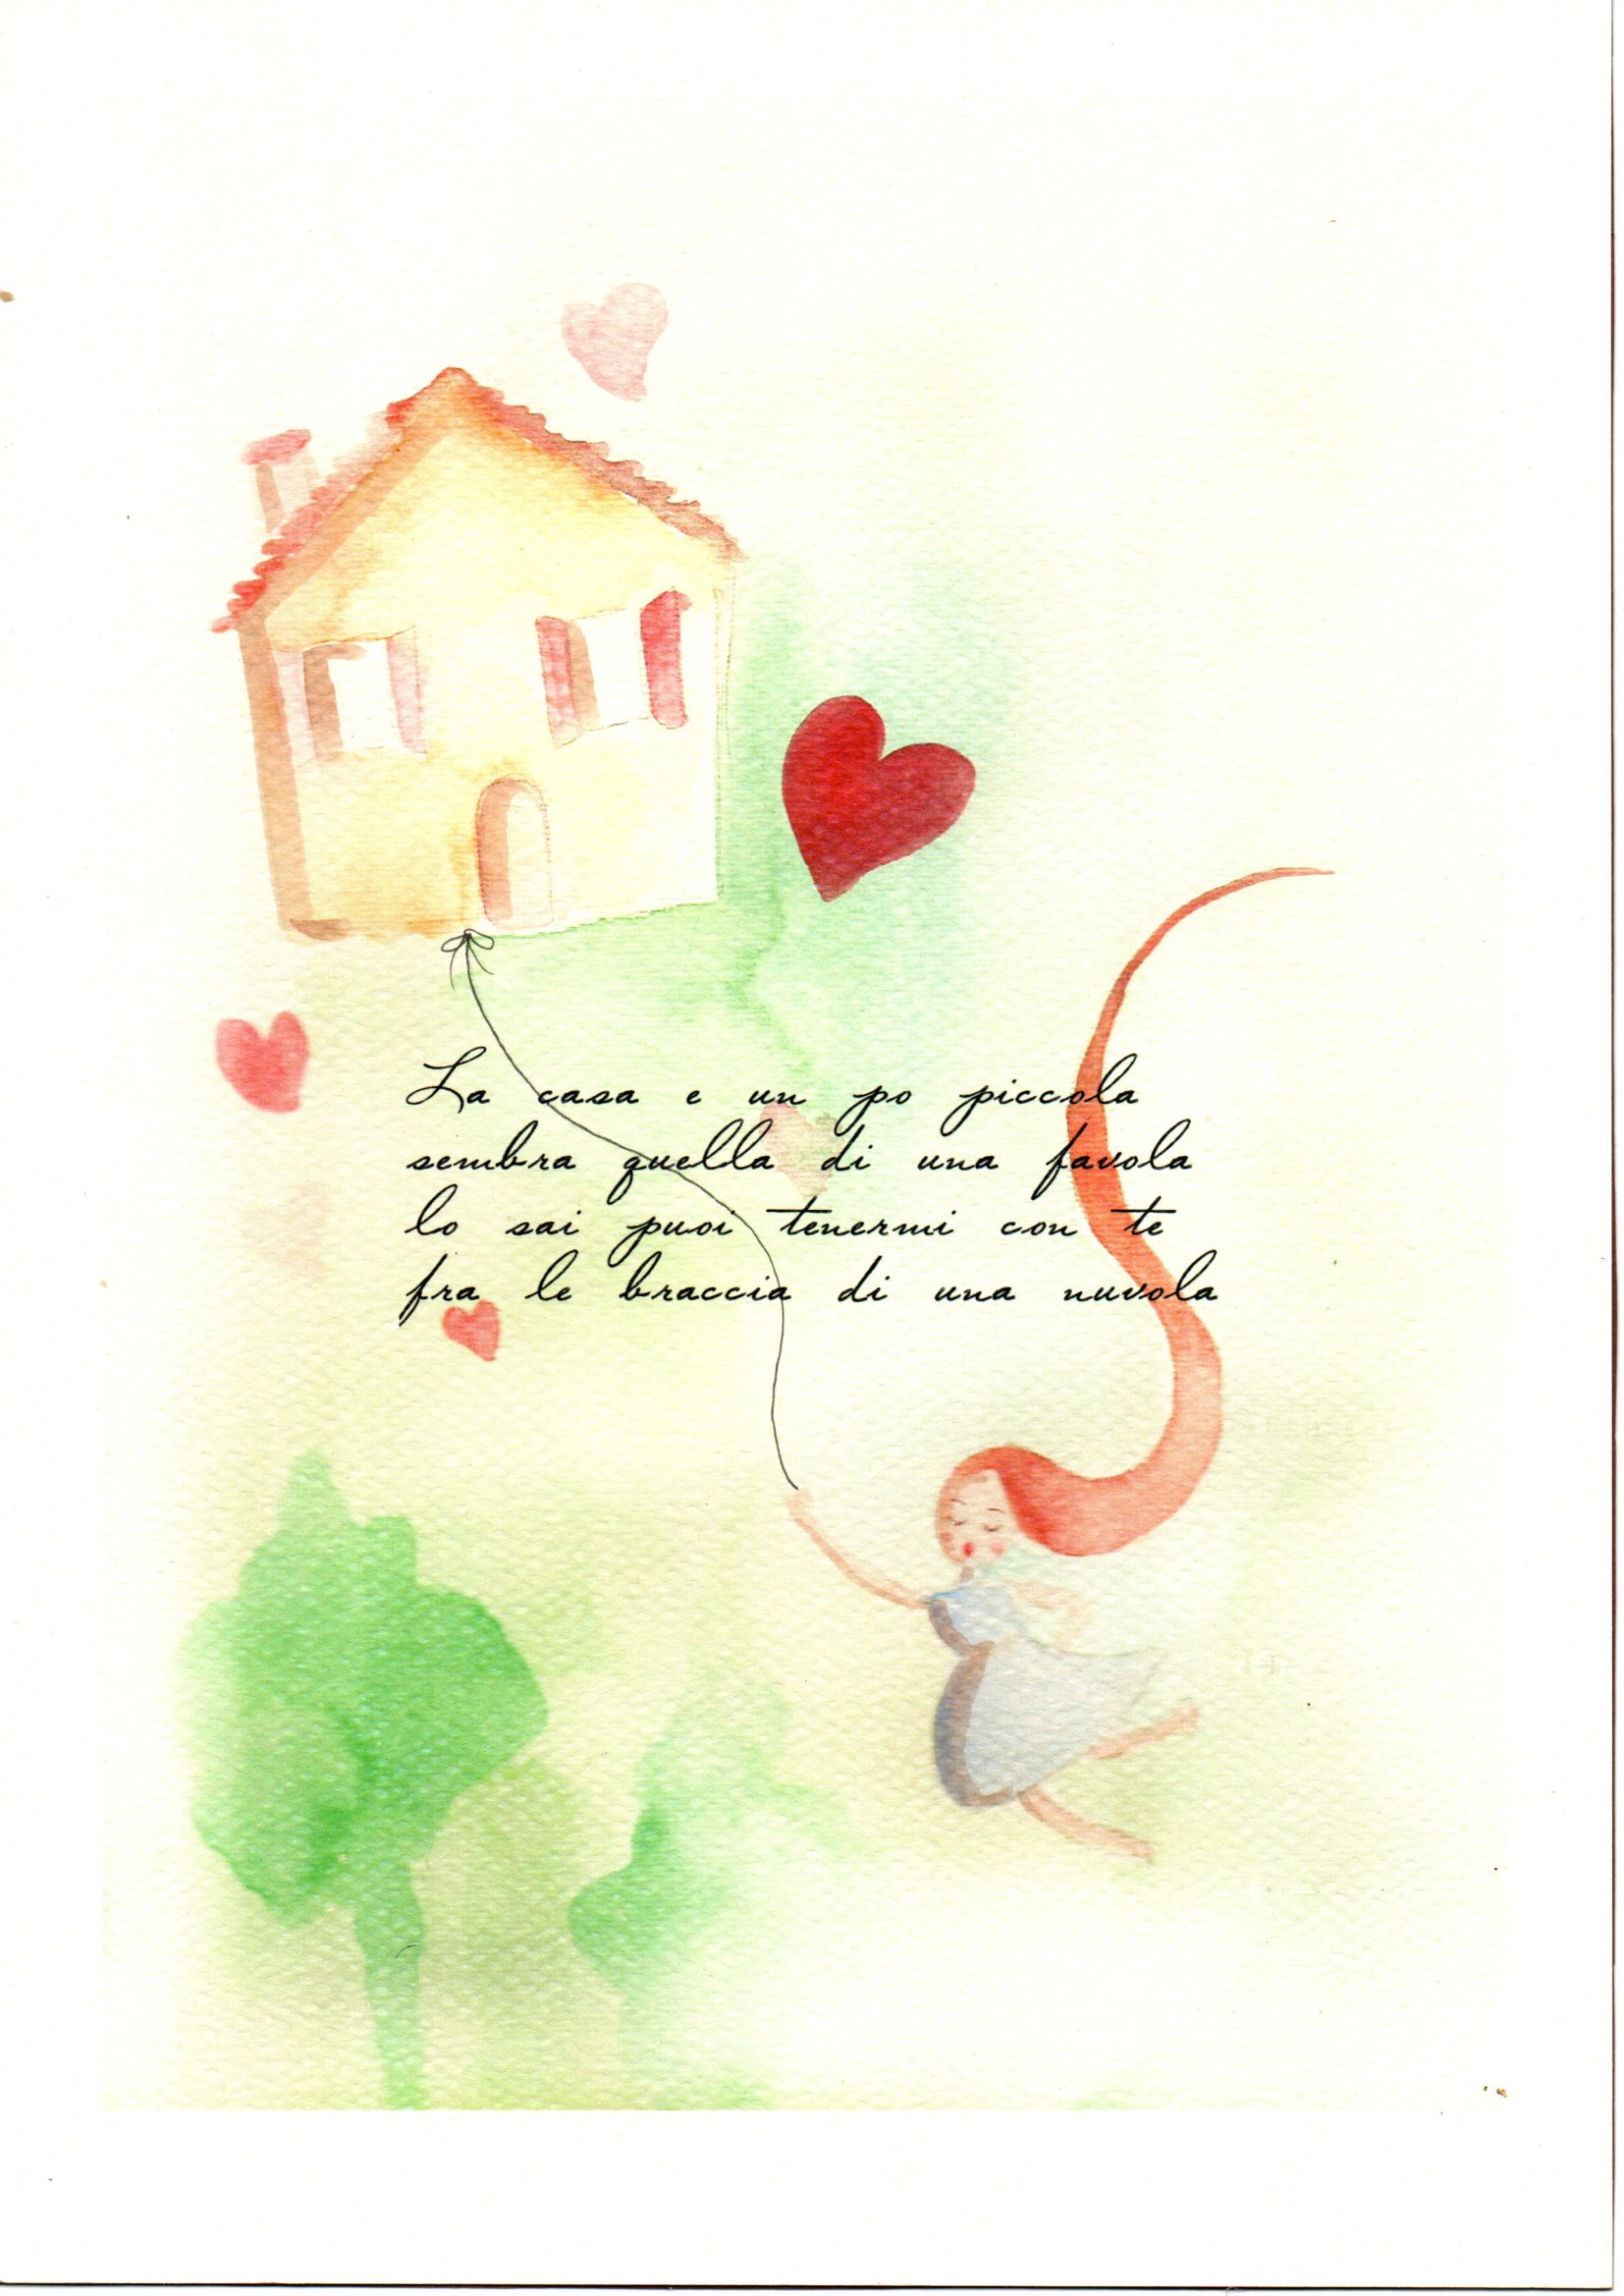 La casa e un po piccola
sembra quella di una favola
lo sai puoi tenermi con te
fra le braccia di una nuvola